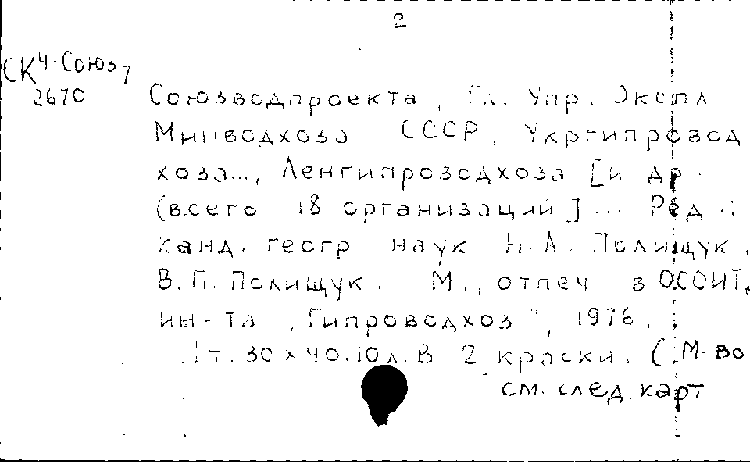 2
СК 4-Союз 7
2670
Союзводпроекта, Гл. Упр. Экспл
Минводхоза СССР, Укргипровод
хоза..., Ленгипроводхоза [и др.
(всего 18 организаций] ... Ред.:
канд. геогр наук Н.А. Полищук,
В.П. Полищук. М., отпеч в ОСОИТ
ин-та "Гипроводхоз", 1976.
1т. 30 х 40. 10л. В 2 краски. (М-во
см. след. карт